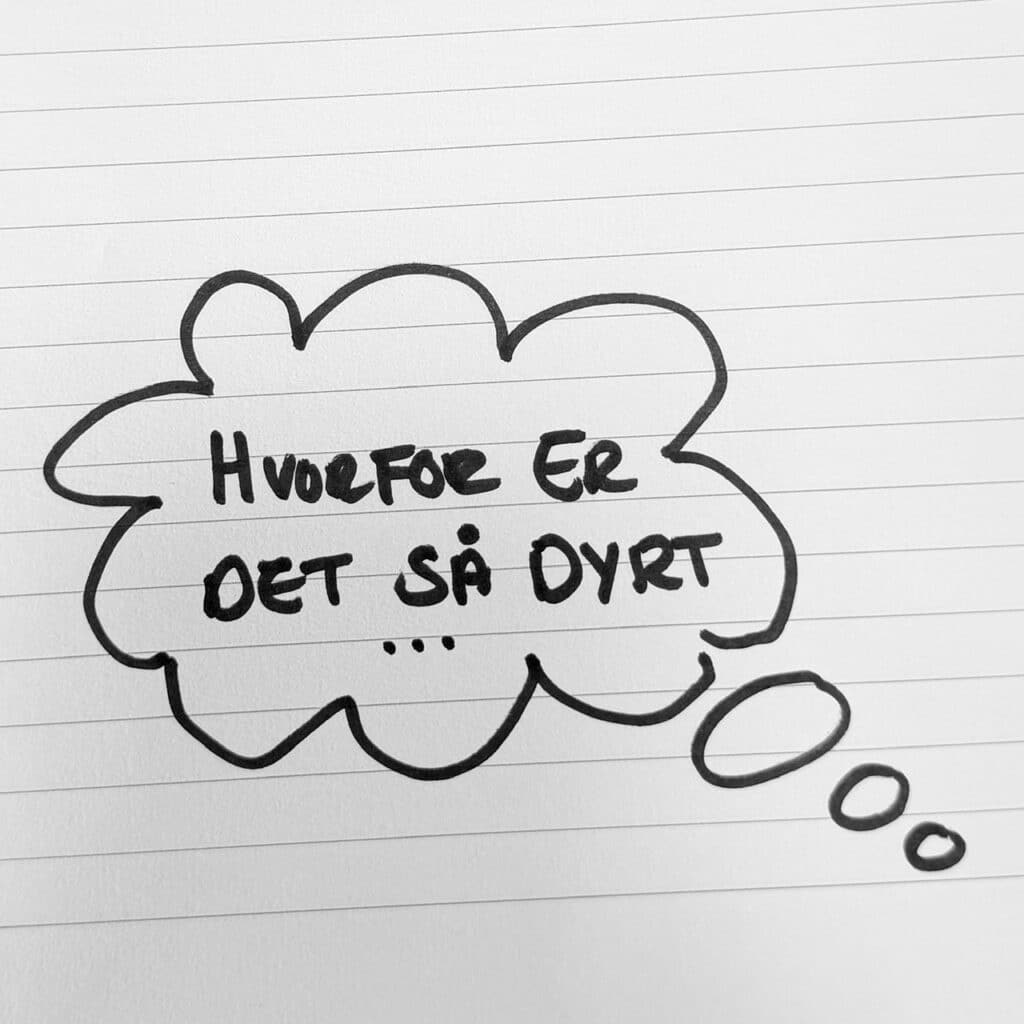 HVORFOR ER
DET SÅ DYRT
...